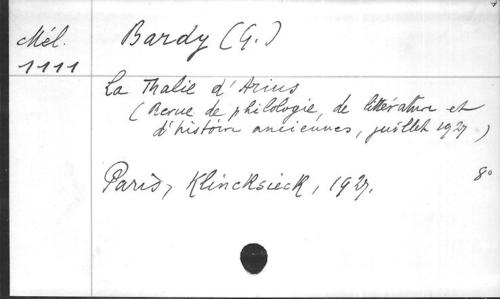 Mél.
1111
Bardy (G.)
La Thalie d'Arius
(Revue de philologie, de littérature et
d'histoire anciennes, juillet 1927.)
Paris, Klincksieck, 1927.
8°